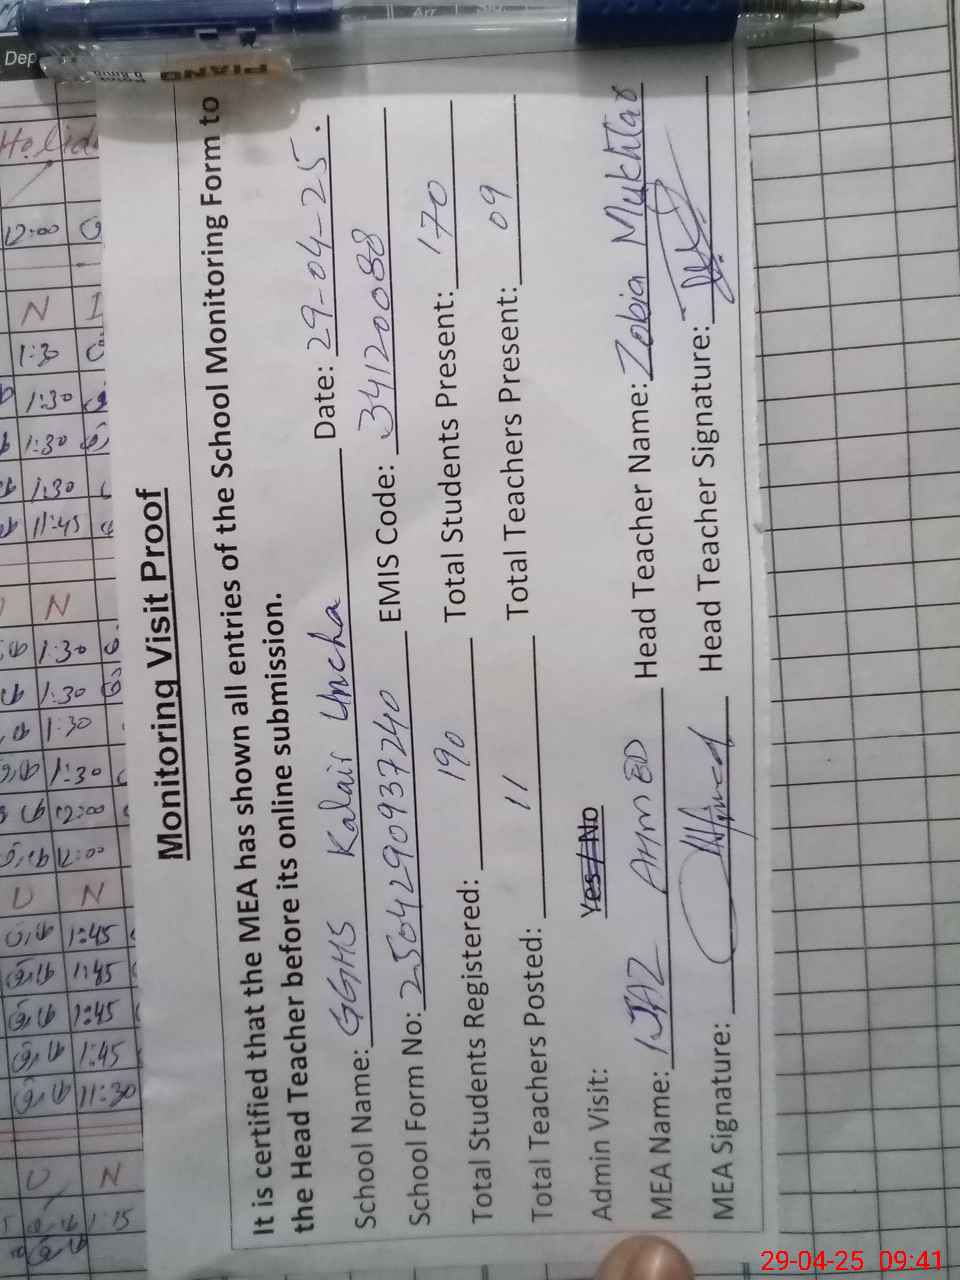 Monitoring Visit Proof
It is certified that the MEA has shown all entries of the School Monitoring Form to
the Head Teacher before its online submission.
School Name: GGHS Kalair Uncha Date: 29-04-25.
School Form No: 2504290937240 EMIS Code: 34120088
Total Students Registered: 190 Total Students Present: 170
Total Teachers Posted: 11 Total Teachers Present: 09
Admin Visit: Yes / No
MEA Name: IJAZ AHMED Head Teacher Name: Zobia Mukhtar
MEA Signature: Head Teacher Signature:
PIANO
Dep
12:00
N
1:30
1:30
1:30
1:30
11:45
N
1:30
1:30
1:30
1:30
12:00
12:00
U N
1:45
1:45
1:45
1:45
11:30
U N
1:15
29-04-25 09:41